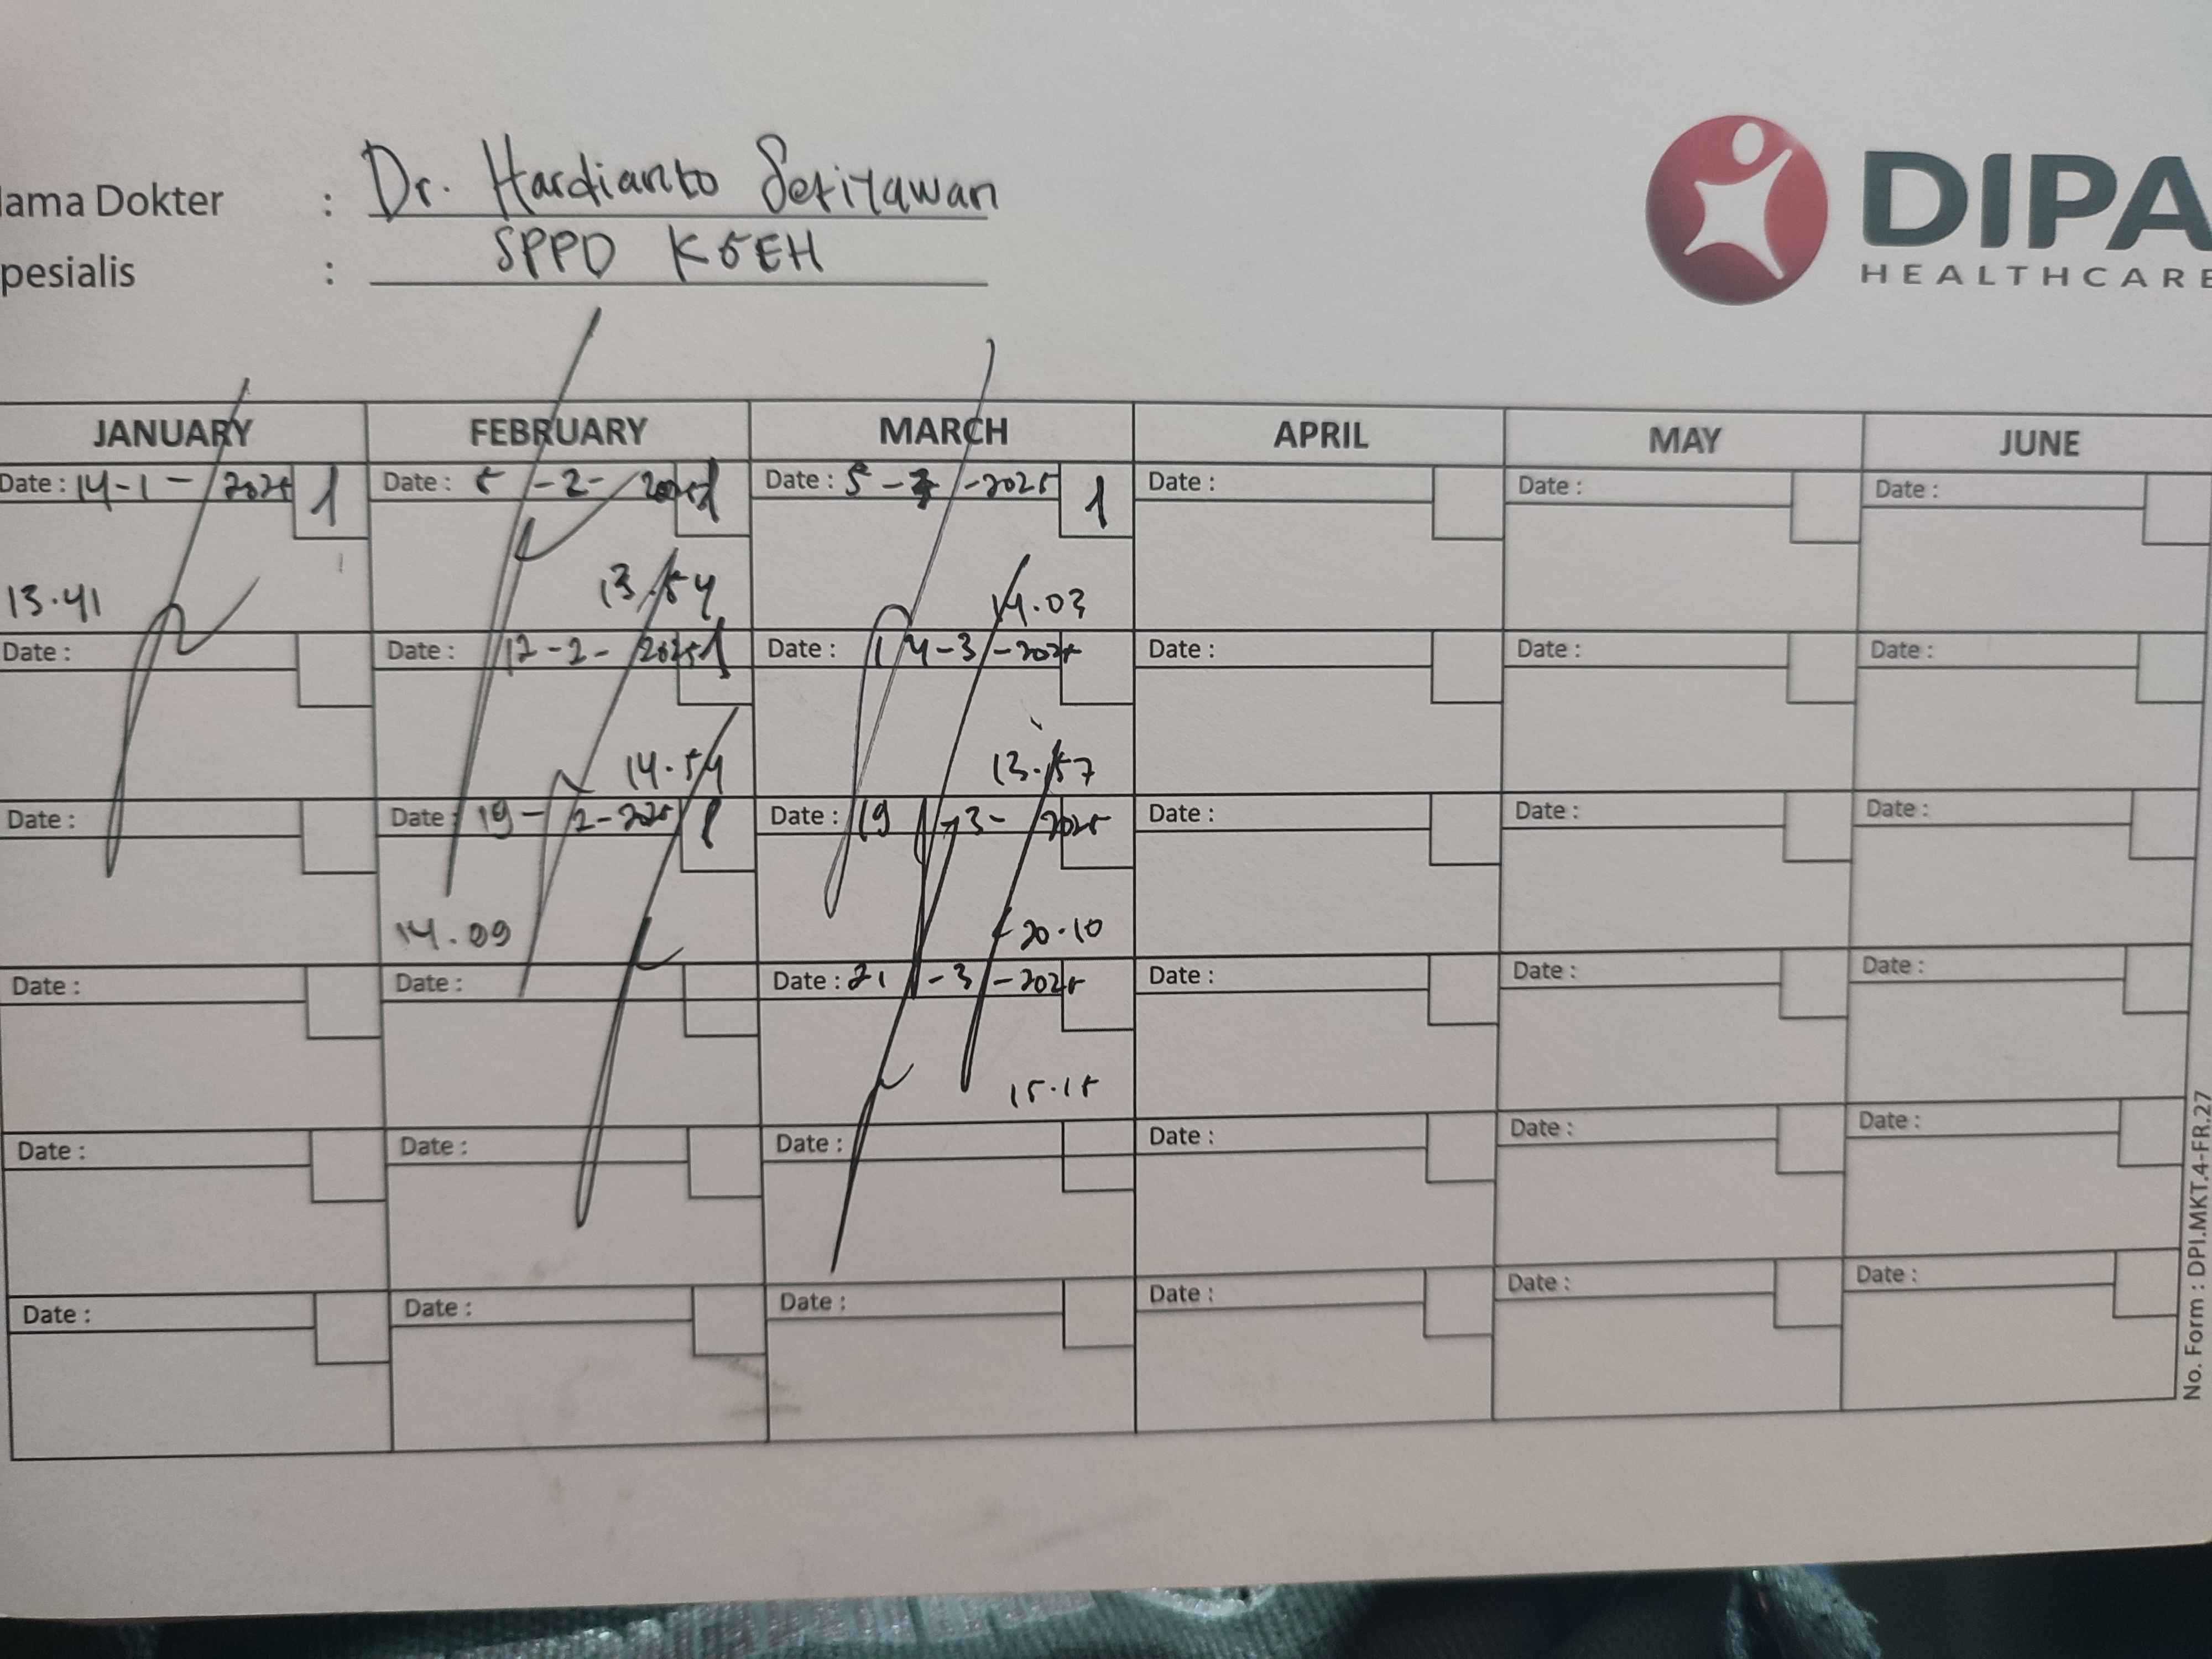 DIPA
HEALTHCARE
ama Dokter : Dr. Hardianto Setiyawan
pesialis : SPPD KGEH
JANUARY FEBRUARY MARCH APRIL MAY JUNE
Date : 14-1-2025 1 Date : 5-2-2025 1 Date : 5-3-2025 1 Date : Date : Date :
13.41 13.54 14.03
Date : Date : 12-2-2025 1 Date : 14-3-2025 Date : Date : Date :
14.54 13.57
Date : Date : 19-2-2025 1 Date : 19-3-2025 Date : Date : Date :
14.09 20.10
Date : Date : Date : 21-3-2025 Date : Date : Date :
15.15
Date : Date : Date : Date : Date : Date :
Date : Date : Date : Date : Date : Date :
No. Form : DPI.MKT.4-FR.27